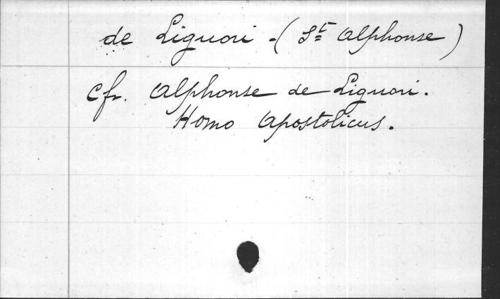 de Liguori - (St Alphonse)
Cfr. Alphonse de Liguori.
Homo Apostolicus.